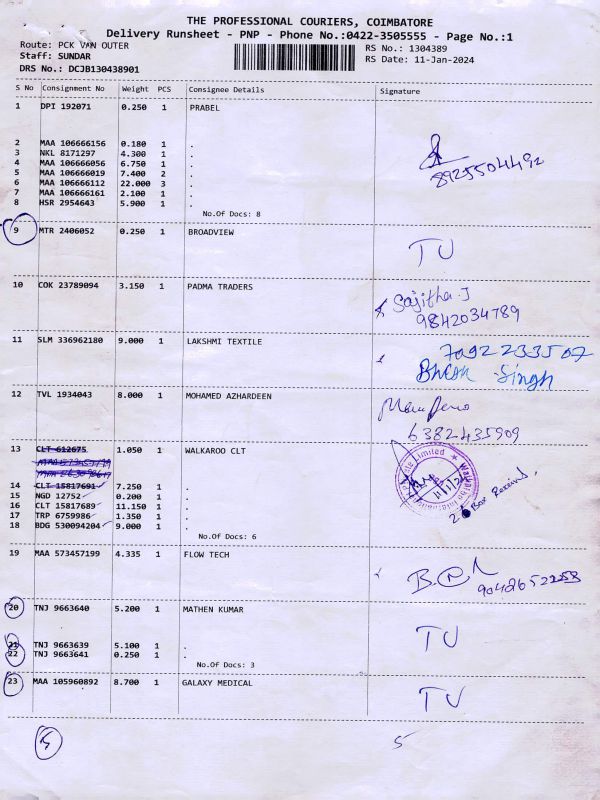 THE PROFESSIONAL COURIERS, COIMBATORE
Delivery Runsheet - PNP - Phone No.:0422-3505555 - Page No.:1
Route: PCK VAN OUTER
RS No.: 1304389
Staff: SUNDAR
RS Date: 11-Jan-2024
DRS No.: DCJB130438901
S No Consignment No Weight PCS Consignee Details Signature
1 DPI 192071 0.250 1 PRABEL
2 MAA 106666156 0.180 1 .
3 NKL 8171297 4.300 1 .
4 MAA 106666056 6.750 1 .
5 MAA 106666019 7.400 2 .
6 MAA 106666112 22.000 3 .
7 MAA 106666161 2.100 1 .
8 HSR 2954643 5.900 1 .
8925504492
No.Of Docs: 8
9 MTR 2406052 0.250 1 BROADVIEW
TU
10 COK 23789094 3.150 1 PADMA TRADERS
Sajitha.J
9842034789
11 SLM 336962180 9.000 1 LAKSHMI TEXTILE
7092233507
Singh
12 TVL 1934043 8.000 1 MOHAMED AZHARDEEN
6382435909
13 CLT 612675 1.050 1 WALKAROO CLT
14 CLT 15817691 7.250 1 .
15 NGD 12752 0.200 1 .
16 CLT 15817689 11.150 1 .
17 TRP 6759986 1.350 1 .
18 BDG 530094204 9.000 1 .
Box Received
No.Of Docs: 6
19 MAA 573457199 4.335 1 FLOW TECH
20 TNJ 9663640 5.200 1 MATHEN KUMAR
TU
21 TNJ 9663639 5.100 1 .
22 TNJ 9663641 0.250 1 .
No.Of Docs: 3
23 MAA 105960892 8.700 1 GALAXY MEDICAL
TU
5 5